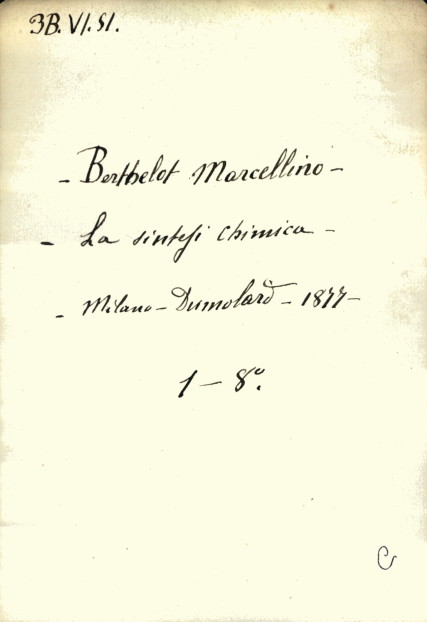 3B.VI.51.
- Berthelot Marcellino -
- La sintesi chimica -
- Milano - Dumolard - 1877 -
1 - 8º.
C